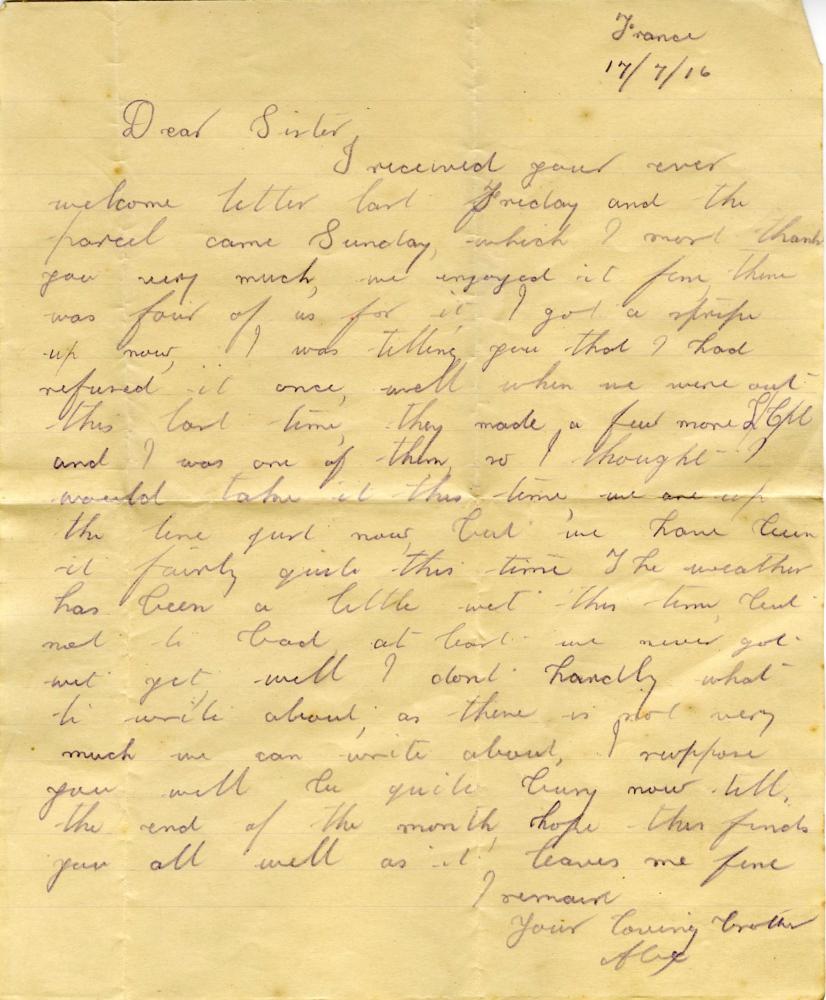 France
17/7/16
Dear Sister,
I received your ever
welcome letter last Friday and the
parcel came Sunday, which I most thank
you very much, we enjoyed it fine, there
was four of us for it, I got a stripe
up now, I was telling you that I had
refused it once, well when we were out
this last time, they made a few more L/Cpl
and I was one of them, so I thought I
would take it this time, we are up
the line just now, but we have been
it fairly quite this time The weather
has been a little wet this time, but
not to bad at least we never got
wet yet, well I dont hardly what
to write about, as there is not very
much we can write about, I suppose
you will be quite busy now till,
the end of the month, hope this finds
you all well as it leaves me fine
I remain
Your loving brother
Alex